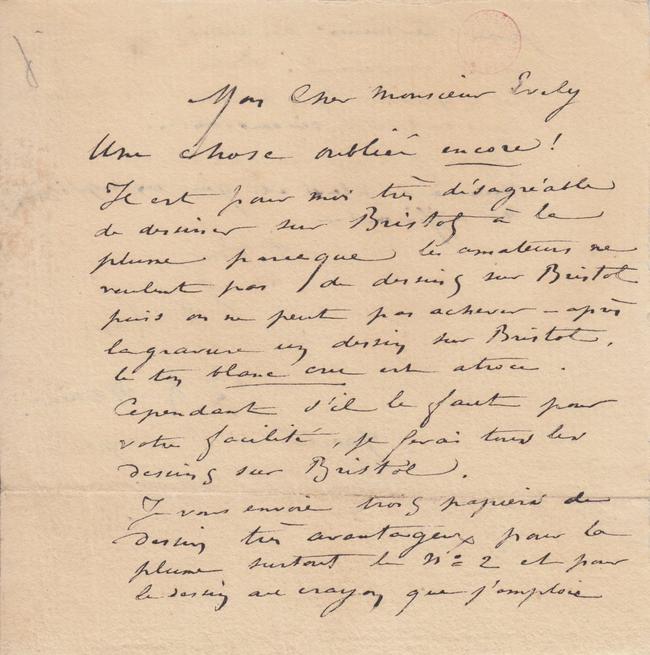 Mon Cher Monsieur Evely
Une chose oubliée encore !
Il est pour moi très désagréable
de dessiner sur Bristol à la
plume parceque les amateurs ne
veulent pas de dessins sur Bristol
puis on ne peut pas achever – après
la gravure un dessin sur Bristol.
le ton blanc cru est atroce.
Cependant s'il le faut pour
votre facilité, je ferai tous les
dessins sur Bristol.
Je vous envoie trois papiers de
dessin très avantageux pour la
plume surtout le N° 2 et pour
le dessin au crayon que j'emploie